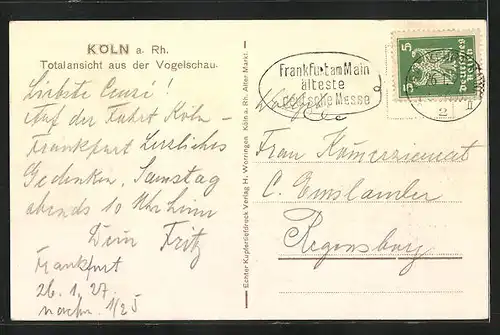 KÖLN a. Rh.
Totalansicht aus der Vogelschau.
Liebste Cenzi!
Auf der Fahrt Köln –
Frankfurt herzliches
Gedenken. Samstag
abends 10 Uhr
Dein Fritz
Frankfurt
26. 1. 27.
nachm. 1/25
Echter Kupfertiefdruck Verlag H. Worringen Köln a. Rh. Alter Markt.
Frankfurt am Main
älteste
deutsche Messe
5 5
Deutsches
Reich
Frau Komerzienrat
C. Emslander
Regensburg